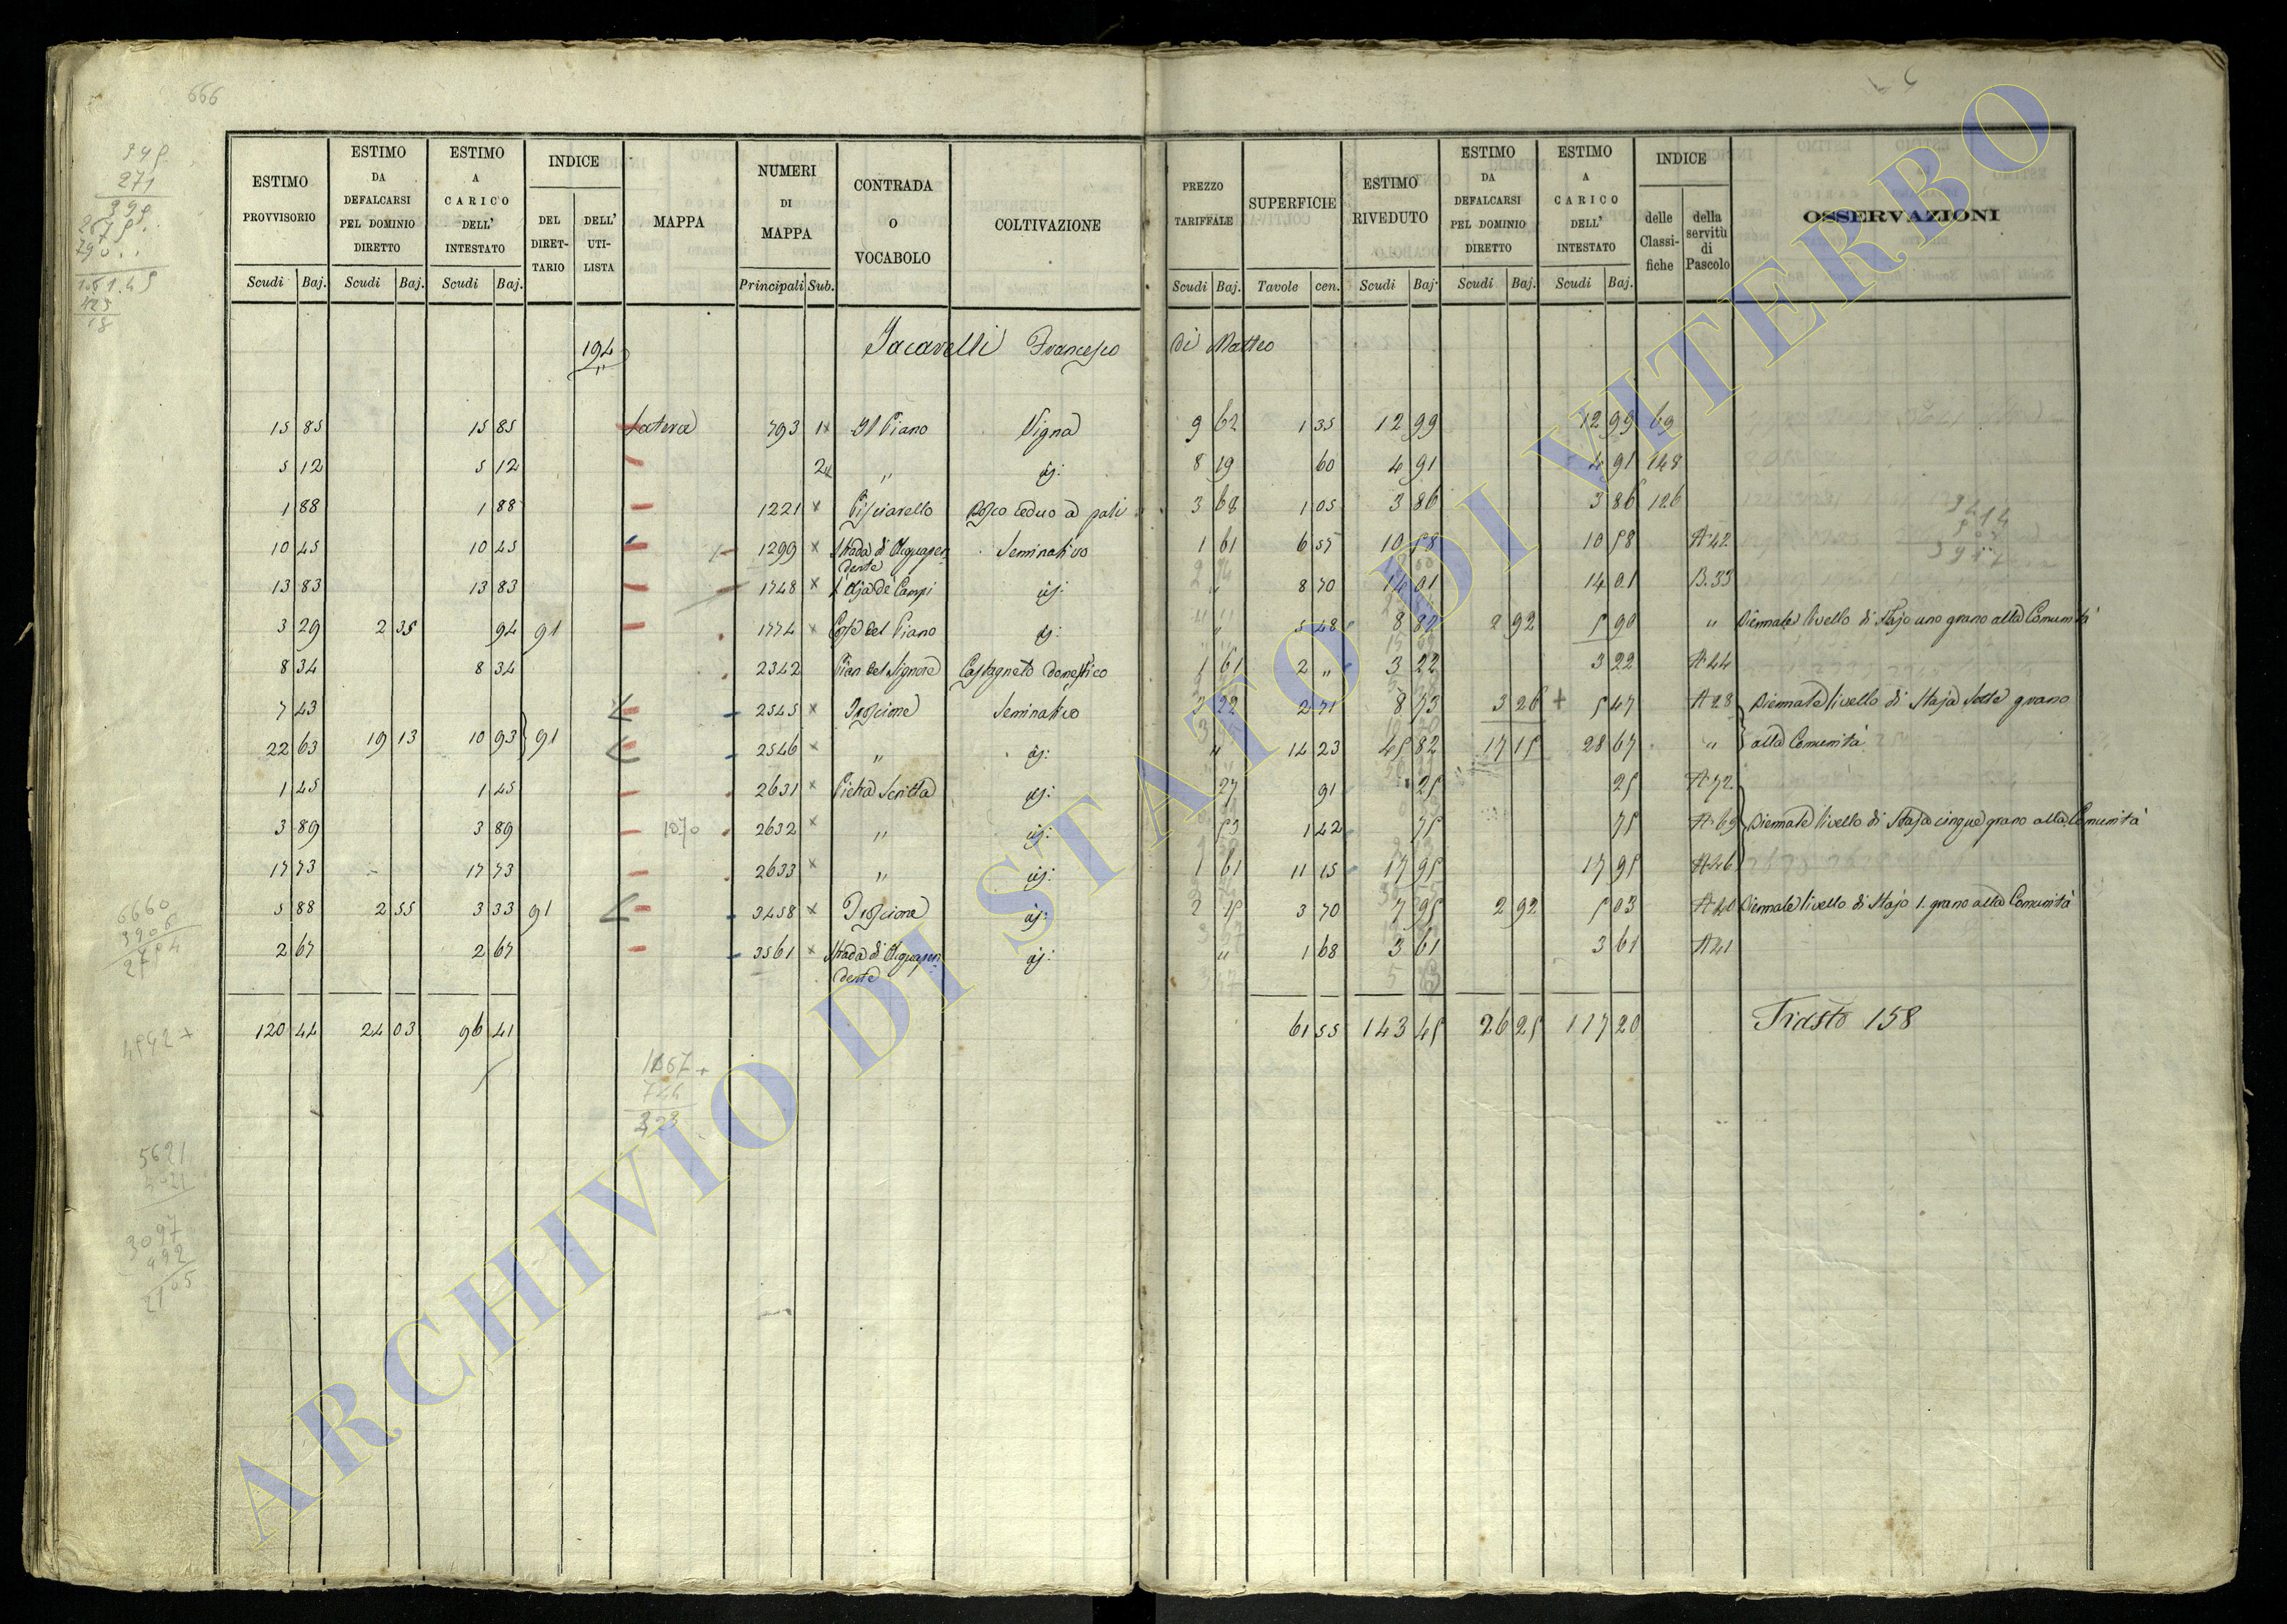 666
ESTIMO PROVVISORIO
ESTIMO DA DEFALCARSI PEL DOMINIO DIRETTO
ESTIMO A CARICO DELL' INTESTATO
INDICE
DEL DIRET-TARIO
DELL' UTI-LISTA
MAPPA
NUMERI DI MAPPA
CONTRADA O VOCABOLO
COLTIVAZIONE
PREZZO TARIFFALE
SUPERFICIE
ESTIMO RIVEDUTO
ESTIMO DA DEFALCARSI PEL DOMINIO DIRETTO
ESTIMO A CARICO DELL' INTESTATO
INDICE
delle Classi-fiche
della servitù di Pascolo
OSSERVAZIONI
Scudi Baj. Scudi Baj. Scudi Baj. Principali Sub. Scudi Baj. Tavole cen. Scudi Baj. Scudi Baj. Scudi Baj.
194 Jacarelli Francesco di Matteo
15 85 15 85 Latera 793 1 x Il Piano Vigna 9 62 1 35 12 99 12 99 69
5 12 5 12 2 x " id: 8 19 60 4 91 4 91 148
1 88 1 88 1221 x Pisciarello Bosco ceduo a pali 3 68 1 05 3 86 3 86 126
10 45 10 45 1299 x Strada di Acquapen dente Seminativo 1 61 6 57 10 58 10 58 A 42
13 83 13 83 1748 x id: " 8 70 14 01 14 01 B. 33
3 29 2 35 94 91 1774 x del Piano id: " 5 48 8 82 2 92 5 90 " Biennale livello di Stajo uno grano alla Comunità
8 34 8 34 2342 Pian del Signore Castagneto domestico 1 61 2 " 3 22 3 22 A 44
7 43 2545 x Seminativo 3 22 2 71 8 73 3 26 + 5 47 A 28 Biennale livello di Staja Sette grano
22 63 19 13 10 93 91 2546 x " id: " 14 23 45 82 17 15 28 67 " alla Comunità
1 45 1 45 2631 x Pietra Scritta id: 27 91 25 25 A 72
3 89 3 89 1070 2632 x " id: 53 1 42 75 75 A 69 Biennale livello di Staja cinque grano alla Comunità
17 73 17 73 2633 x " id: 1 61 11 15 17 95 17 95 A 46
5 88 2 55 3 33 91 3458 x id: 2 15 3 70 7 95 2 92 5 03 A 40 Biennale livello di Stajo 1. grano alla Comunità
2 67 2 67 3561 x Strada di Acquapen dente id: " 1 68 3 61 3 61 A 41
120 44 24 03 96 41 61 55 143 45 26 25 117 20 Trasto 158
ARCHIVIO DI STATO DI VITERBO